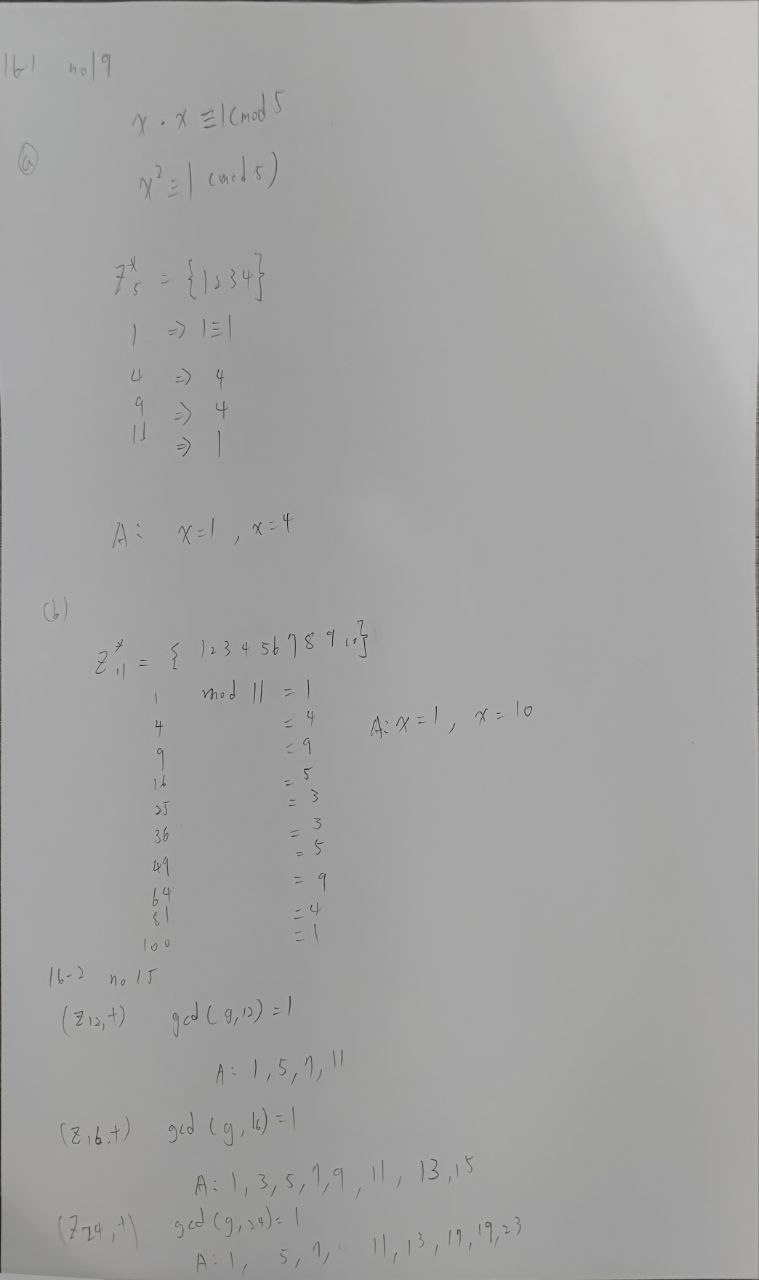 16-1 no19
x · x ≡ 1 (mod 5
(a)
x² ≡ 1 (mod 5)
Z*₅ = {1 2 3 4}
1 ⇒ 1≡1
4 ⇒ 4
9 ⇒ 4
⇒ 1
A: x=1, x=4
(b)
Z*₁₁ = { 1 2 3 4 5 6 7 8 9 10}
1 mod 11 = 1
4 = 4
A: x=1, x=10
9 = 9
16 = 5
25 = 3
36 = 3
49 = 5
64 = 9
81 = 4
100 = 1
16-2 no 15
(Z₁₂,+) gcd(g,12)=1
A: 1,5,7,11
(Z₁₆,+) gcd(g,16)=1
A: 1,3,5,7,9,11,13,15
(Z₂₄,+) gcd(g,24)=1
A: 1, 5,7, 11,13,17,19,23